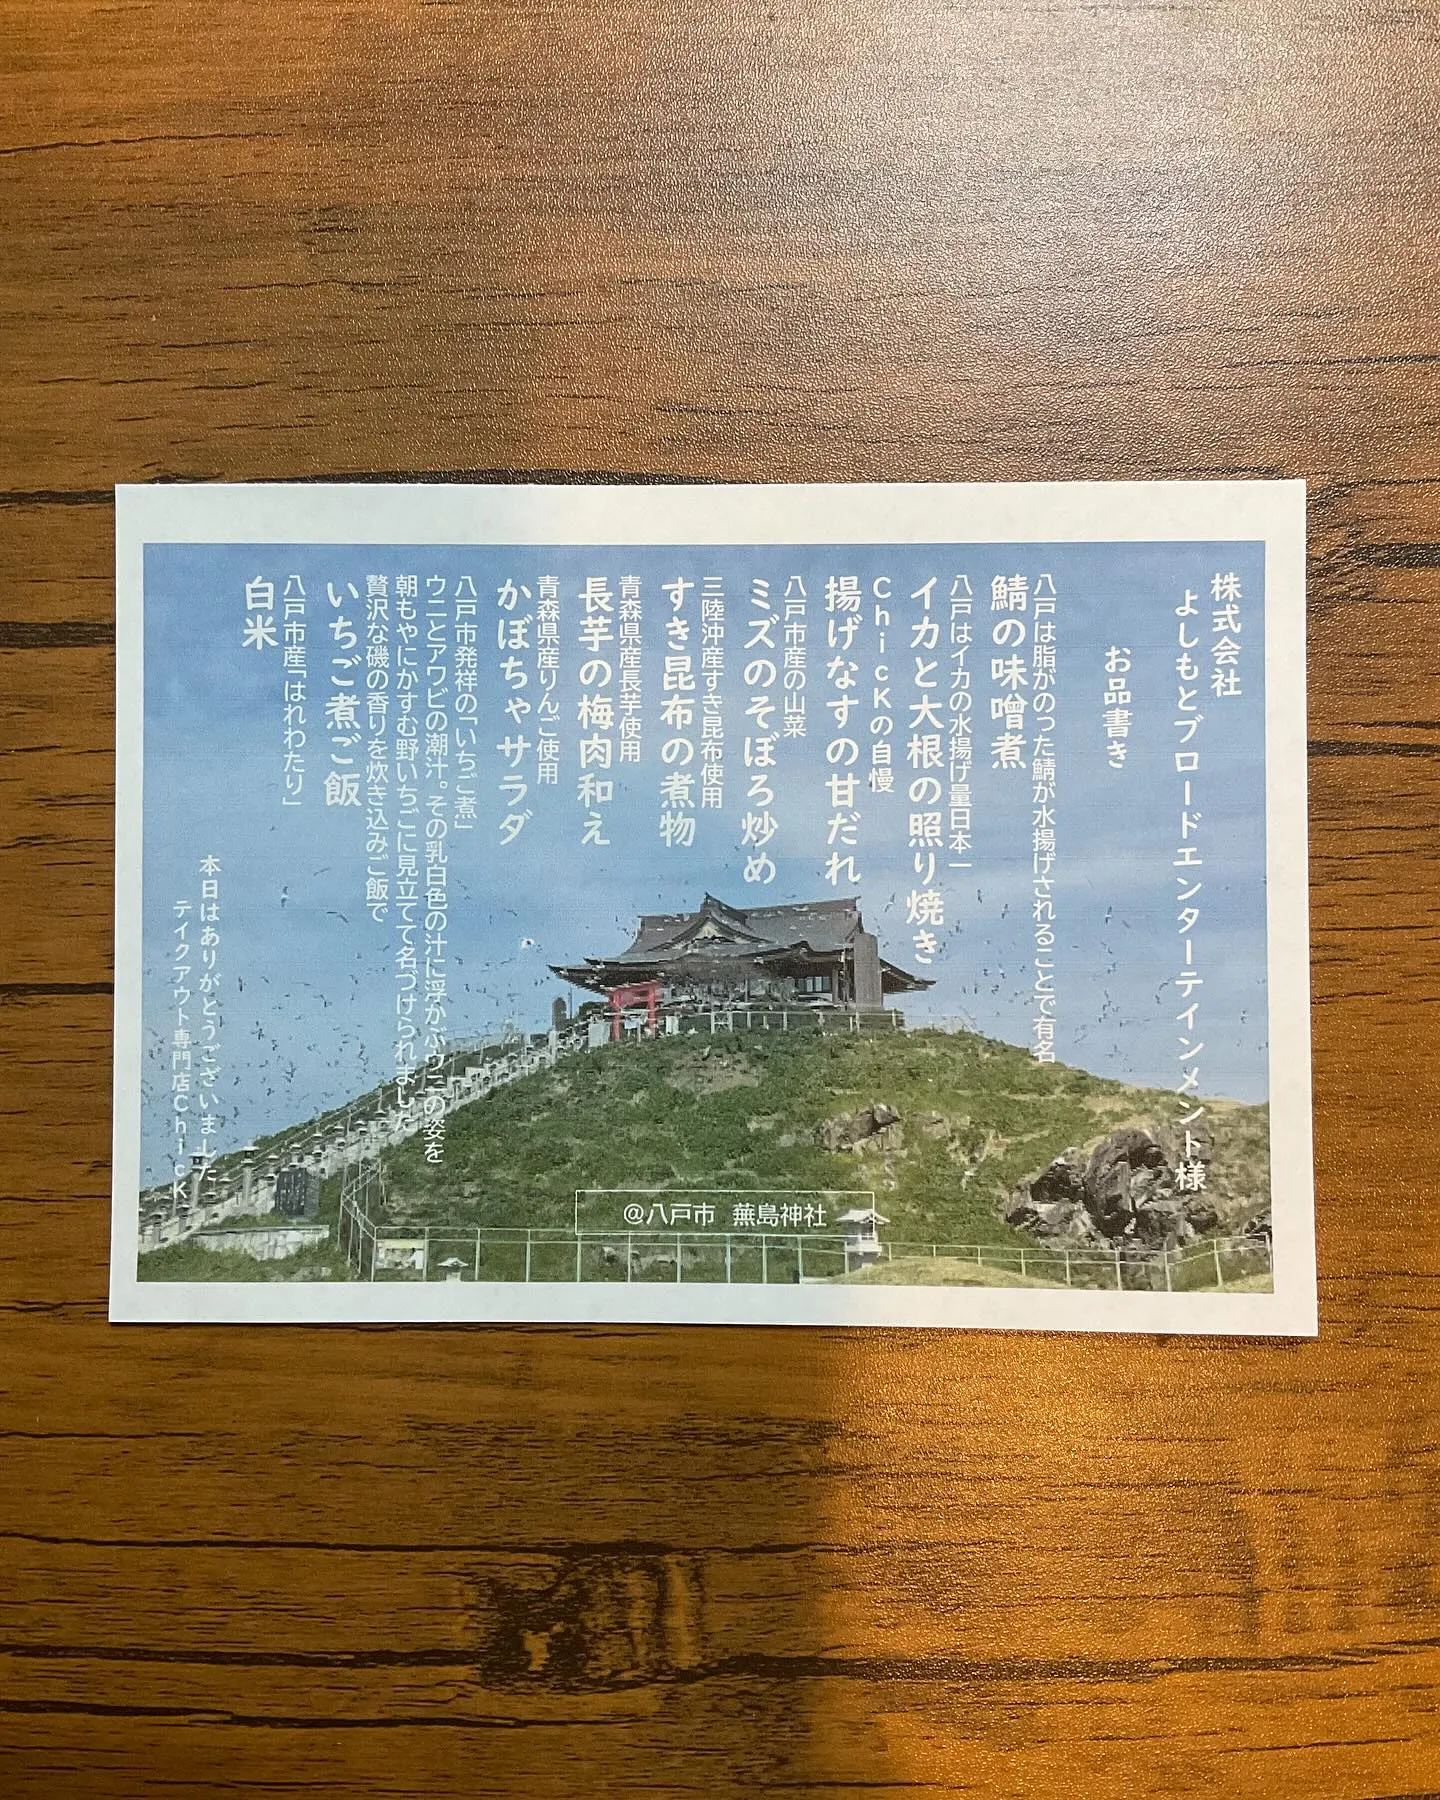 株式会社
よしもとブロードエンターテインメント様
お品書き
八戸は脂がのった鯖が水揚げされることで有名
鯖の味噌煮
八戸はイカの水揚げ量日本一
イカと大根の照り焼き
ChicKの自慢
揚げなすの甘だれ
八戸市産の山菜
ミズのそぼろ炒め
三陸沖産すき昆布使用
すき昆布の煮物
青森県産長芋使用
長芋の梅肉和え
青森県産りんご使用
かぼちゃサラダ
八戸市発祥の「いちご煮」
ウニとアワビの潮汁。その乳白色の汁に浮かぶウニの姿を
朝もやにかすむ野いちごに見立てて名づけられました
贅沢な磯の香りを炊き込みご飯で
いちご煮ご飯
八戸市産「はれわたり」
白米
本日はありがとうございました
テイクアウト専門店ChicK
@八戸市 蕪島神社